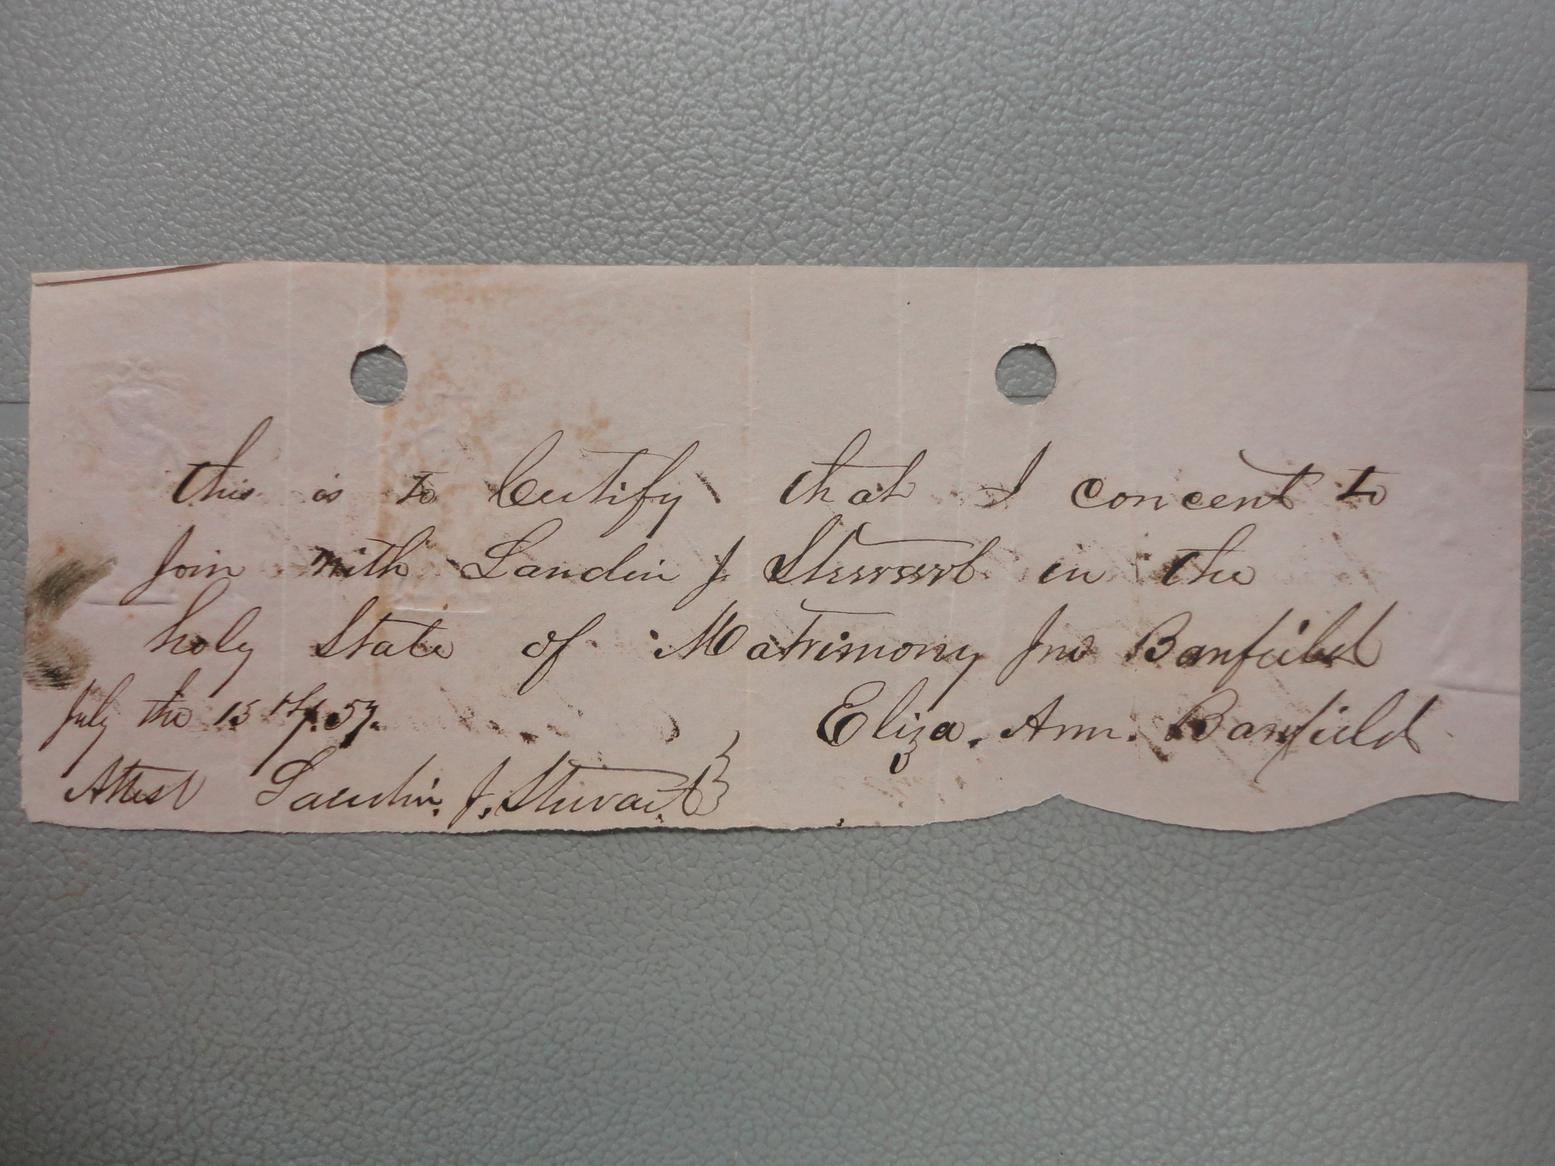 this is to Certify that I concent to
Join with Landin J. Stewart in the
holy State of Matrimony Jno Banfield
July the 15th/57. Eliza. Ann. Banfield
Attest Landin. J. Stewart